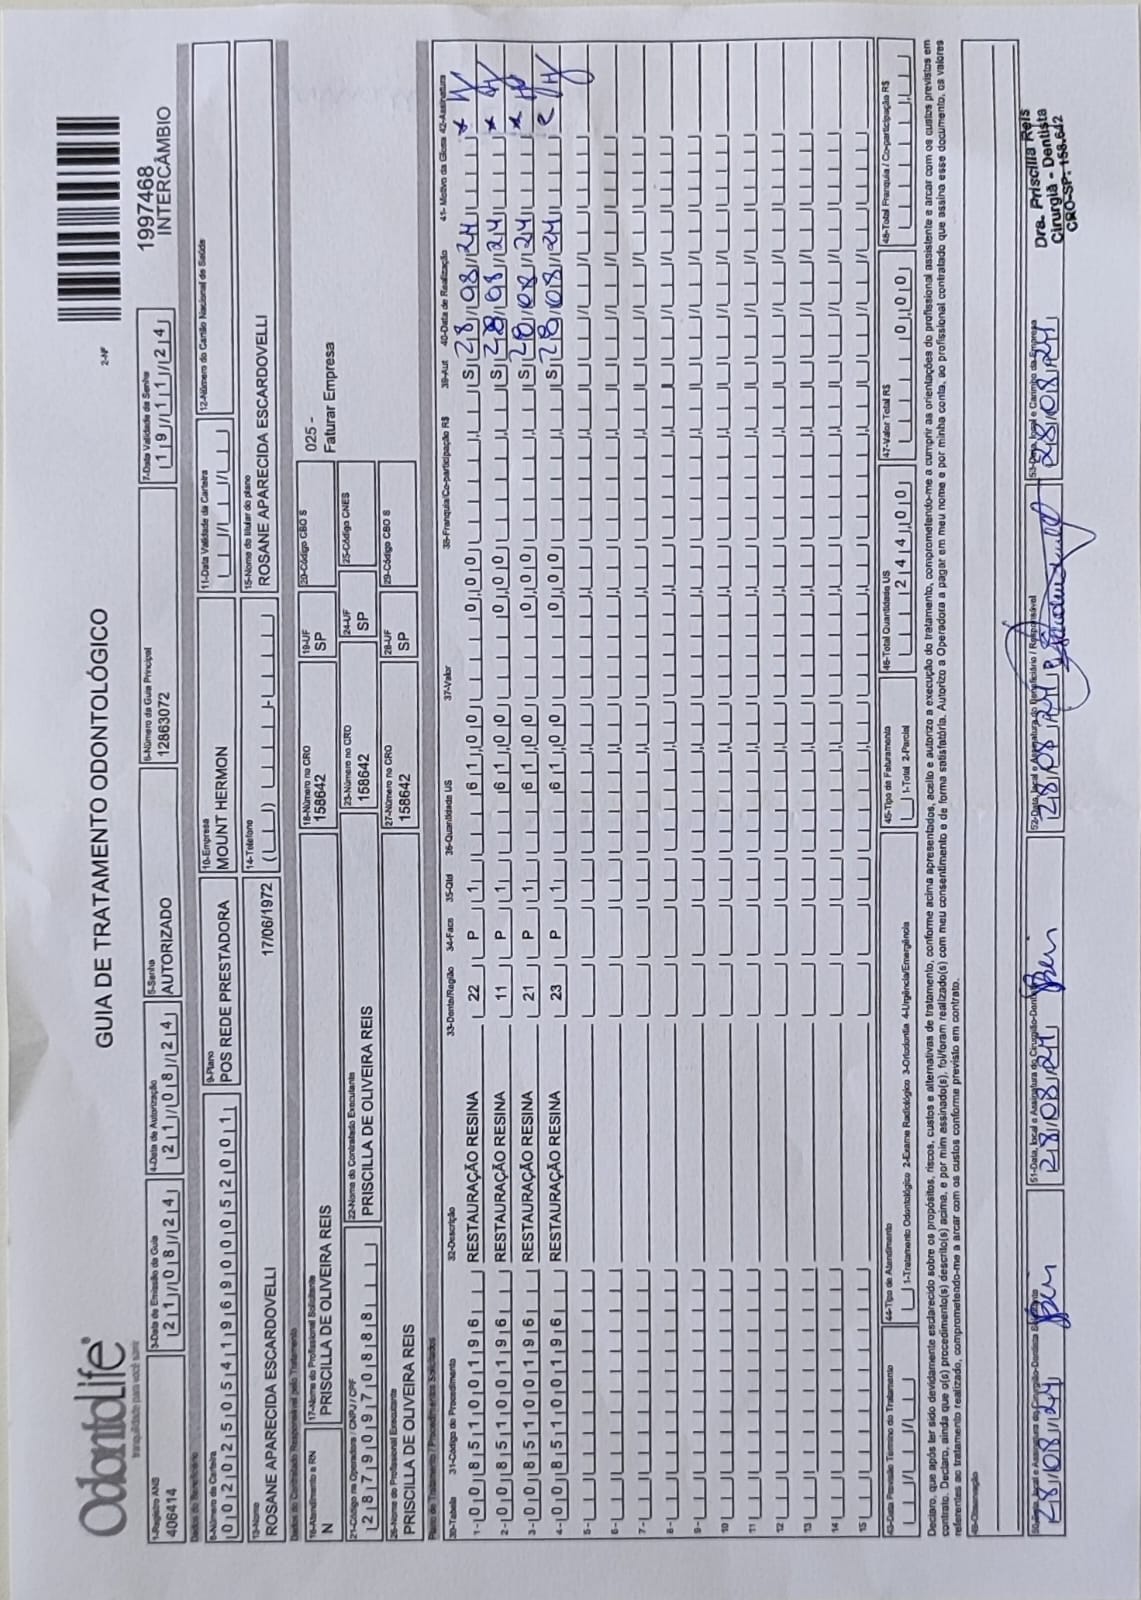 OdontoLife®
tranquilidade para você sorrir
GUIA DE TRATAMENTO ODONTOLÓGICO
2-Nº
1997468
INTERCÂMBIO
1-Registro ANS
406414
3-Data de Emissão da Guia
21/08/24
4-Data de Autorização
21/08/24
5-Senha
AUTORIZADO
6-Número da Guia Principal
12863072
7-Data Validade da Senha
19/11/24
Dados do Beneficiário
8-Número da Carteira
002025054196900052001
9-Plano
POS REDE PRESTADORA
10-Empresa
MOUNT HERMON
11-Data Validade da Carteira
12-Número do Cartão Nacional de Saúde
13-Nome
ROSANE APARECIDA ESCARDOVELLI
17/06/1972
14-Telefone
15-Nome do titular do plano
ROSANE APARECIDA ESCARDOVELLI
Dados do Contratado Responsável pelo Tratamento
16-Atendimento a RN
N
17-Nome do Profissional Solicitante
PRISCILLA DE OLIVEIRA REIS
18-Número no CRO
158642
19-UF
SP
20-Código CBO S
025 -
Faturar Empresa
21-Código na Operadora / CNPJ / CPF
28790970888
22-Nome do Contratado Executante
PRISCILLA DE OLIVEIRA REIS
23-Número no CRO
158642
24-UF
SP
25-Código CNES
26-Nome do Profissional Executante
PRISCILLA DE OLIVEIRA REIS
27-Número no CRO
158642
28-UF
SP
29-Código CBO S
Plano de Tratamento / Procedimentos Solicitados
30-Tabela 31-Código do Procedimento 32-Descrição 33-Dente/Região 34-Face 35-Qtd 36-Quantidade US 37-Valor 38-Franquia/Co-participação R$ 39-Aut 40-Data de Realização 41- Motivo da Glosa 42-Assinatura
1- 00 85100196 RESTAURAÇÃO RESINA 22 P 1 61,00 0,00 S 28/08/24
2- 00 85100196 RESTAURAÇÃO RESINA 11 P 1 61,00 0,00 S 28/08/24
3- 00 85100196 RESTAURAÇÃO RESINA 21 P 1 61,00 0,00 S 28/08/24
4- 00 85100196 RESTAURAÇÃO RESINA 23 P 1 61,00 0,00 S 28/08/24
5-
6-
7-
8-
9-
10
11
12
13
14
15
43-Data Previsão Término do Tratamento
44-Tipo de Atendimento
1-Tratamento Odontológico 2-Exame Radiológico 3-Ortodontia 4-Urgência/Emergência
45-Tipo de Faturamento
1-Total 2-Parcial
46-Total Quantidade US
244,00
47-Valor Total R$
0,00
48-Total Franquia / Co-participação R$
Declaro, que após ter sido devidamente esclarecido sobre os propósitos, riscos, custos e alternativas de tratamento, conforme acima apresentados, aceito e autorizo a execução do tratamento, comprometendo-me a cumprir as orientações do profissional assistente e arcar com os custos previstos em
contrato. Declaro, ainda que o(s) procedimento(s) descrito(s) acima, e por mim assinado(s), foi/foram realizado(s) com meu consentimento e de forma satisfatória. Autorizo a Operadora a pagar em meu nome e por minha conta, ao profissional contratado que assina esse documento, os valores
referentes ao tratamento realizado, comprometendo-me a arcar com os custos conforme previsto em contrato.
49-Observação
50-Data, local e Assinatura do Cirurgião-Dentista Solicitante
28/08/24
51-Data, local e Assinatura do Cirurgião-Dentista
28/08/24
52-Data, local e Assinatura do Beneficiário / Responsável
28/08/24
53-Data, local e Carimbo da Empresa
28/08/24
Dra. Priscilla Reis
Cirurgiã - Dentista
CRO-SP: 158.642